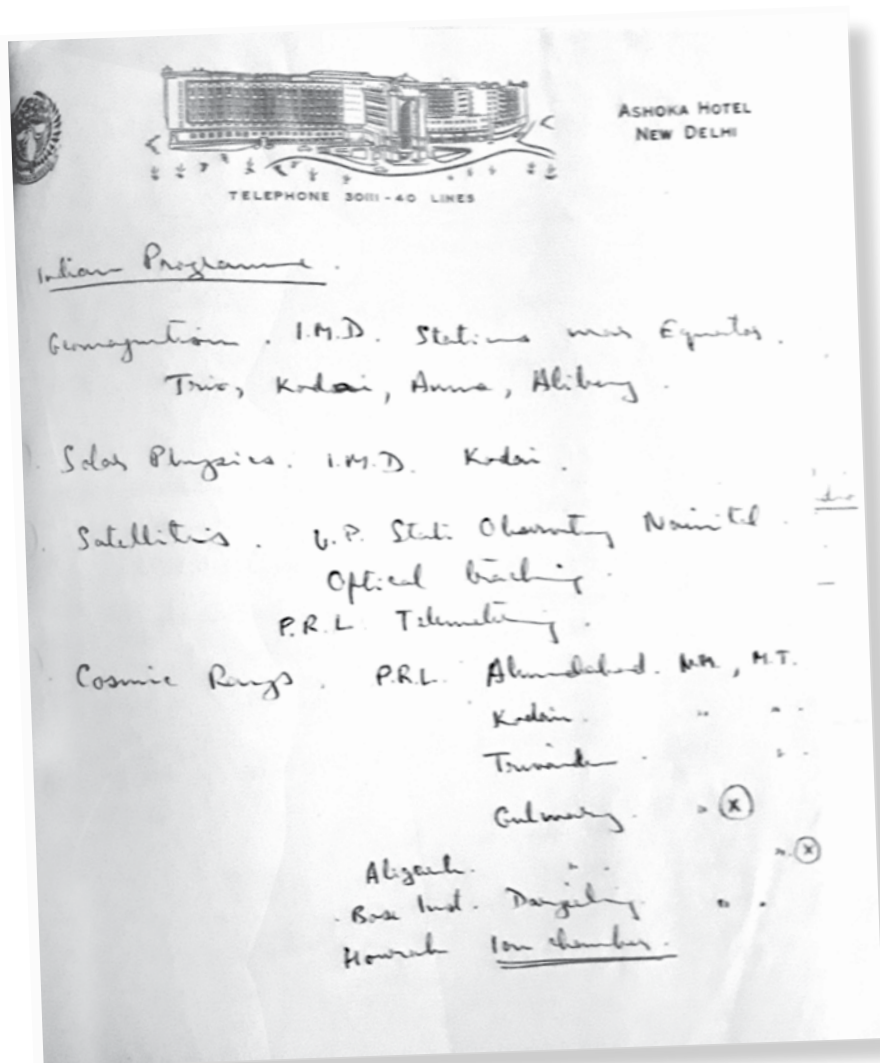 ASHOKA HOTEL
NEW DELHI
TELEPHONE 30111-40 LINES
Indian Programme.
Geomagnetism. I.M.D. Stations near Equator.
Triv, Kodai, Anna, Alibag.
Solar Physics. I.M.D. Kodai.
Satellites. U.P. State Observatory Nainital.
Optical tracking.
P.R.L. Telemetering.
Cosmic Rays. P.R.L. Ahmedabad. N.M., M.T.
Kodai. " " .
Trivandrum . " .
Gulmarg. " (x)
Aligarh. " . " (x)
Bose Inst. Darjeeling. " .
Howrah Ion chamber.